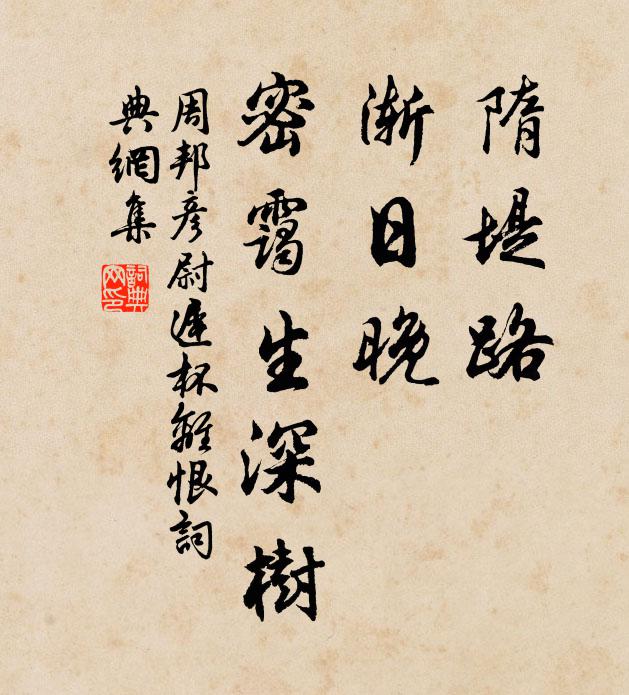 隋堤路
漸日晚
密靄生深樹
周邦彦尉遲杯離恨詞
典網集
詞典網印